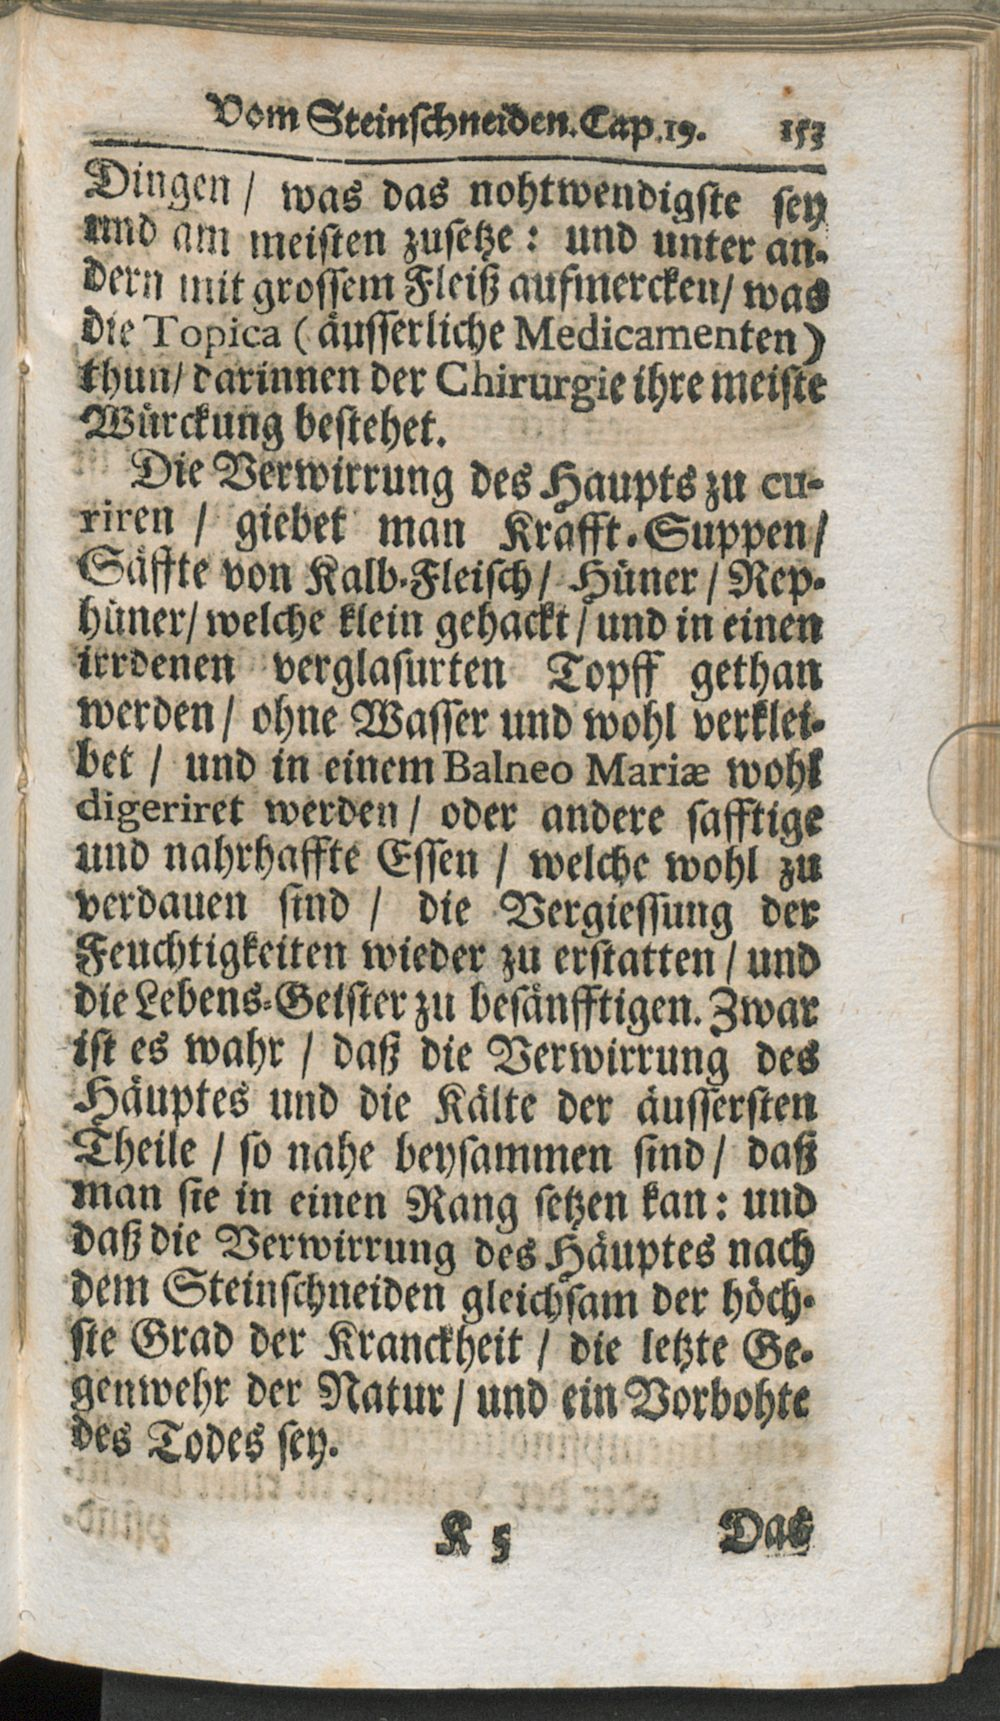 Vom Steinschneiden. Cap. 19. 153
Dingen / was das nohtwendigste sey
und am meisten zusetze: und unter an-
dern mit grossem Fleiß aufmercken / was
die Topica (äusserliche Medicamenten)
thun / darinnen der Chirurgie ihre meiste
Würckung bestehet.
Die Verwirrung des Haupts zu cu-
riren / giebet man Krafft-Suppen /
Säffte von Kalb-Fleisch / Hüner / Rep-
hüner / welche klein gehackt / und in einen
irrdenen verglasurten Topff gethan
werden / ohne Wasser und wohl verklei-
bet / und in einem Balneo Mariæ wohl
digeriret werden / oder andere safftige
und nahrhaffte Essen / welche wohl zu
verdauen sind / die Vergiessung der
Feuchtigkeiten wieder zu erstatten / und
die Lebens-Geister zu besänfftigen. Zwar
ist es wahr / daß die Verwirrung des
Häuptes und die Kälte der äussersten
Theile / so nahe beysammen sind / daß
man sie in einen Rang setzen kan: und
daß die Verwirrung des Häuptes nach
dem Steinschneiden gleichsam der höch-
ste Grad der Kranckheit / die letzte Ge-
genwehr der Natur / und ein Vorbohte
des Todes sey.
K 5 Das